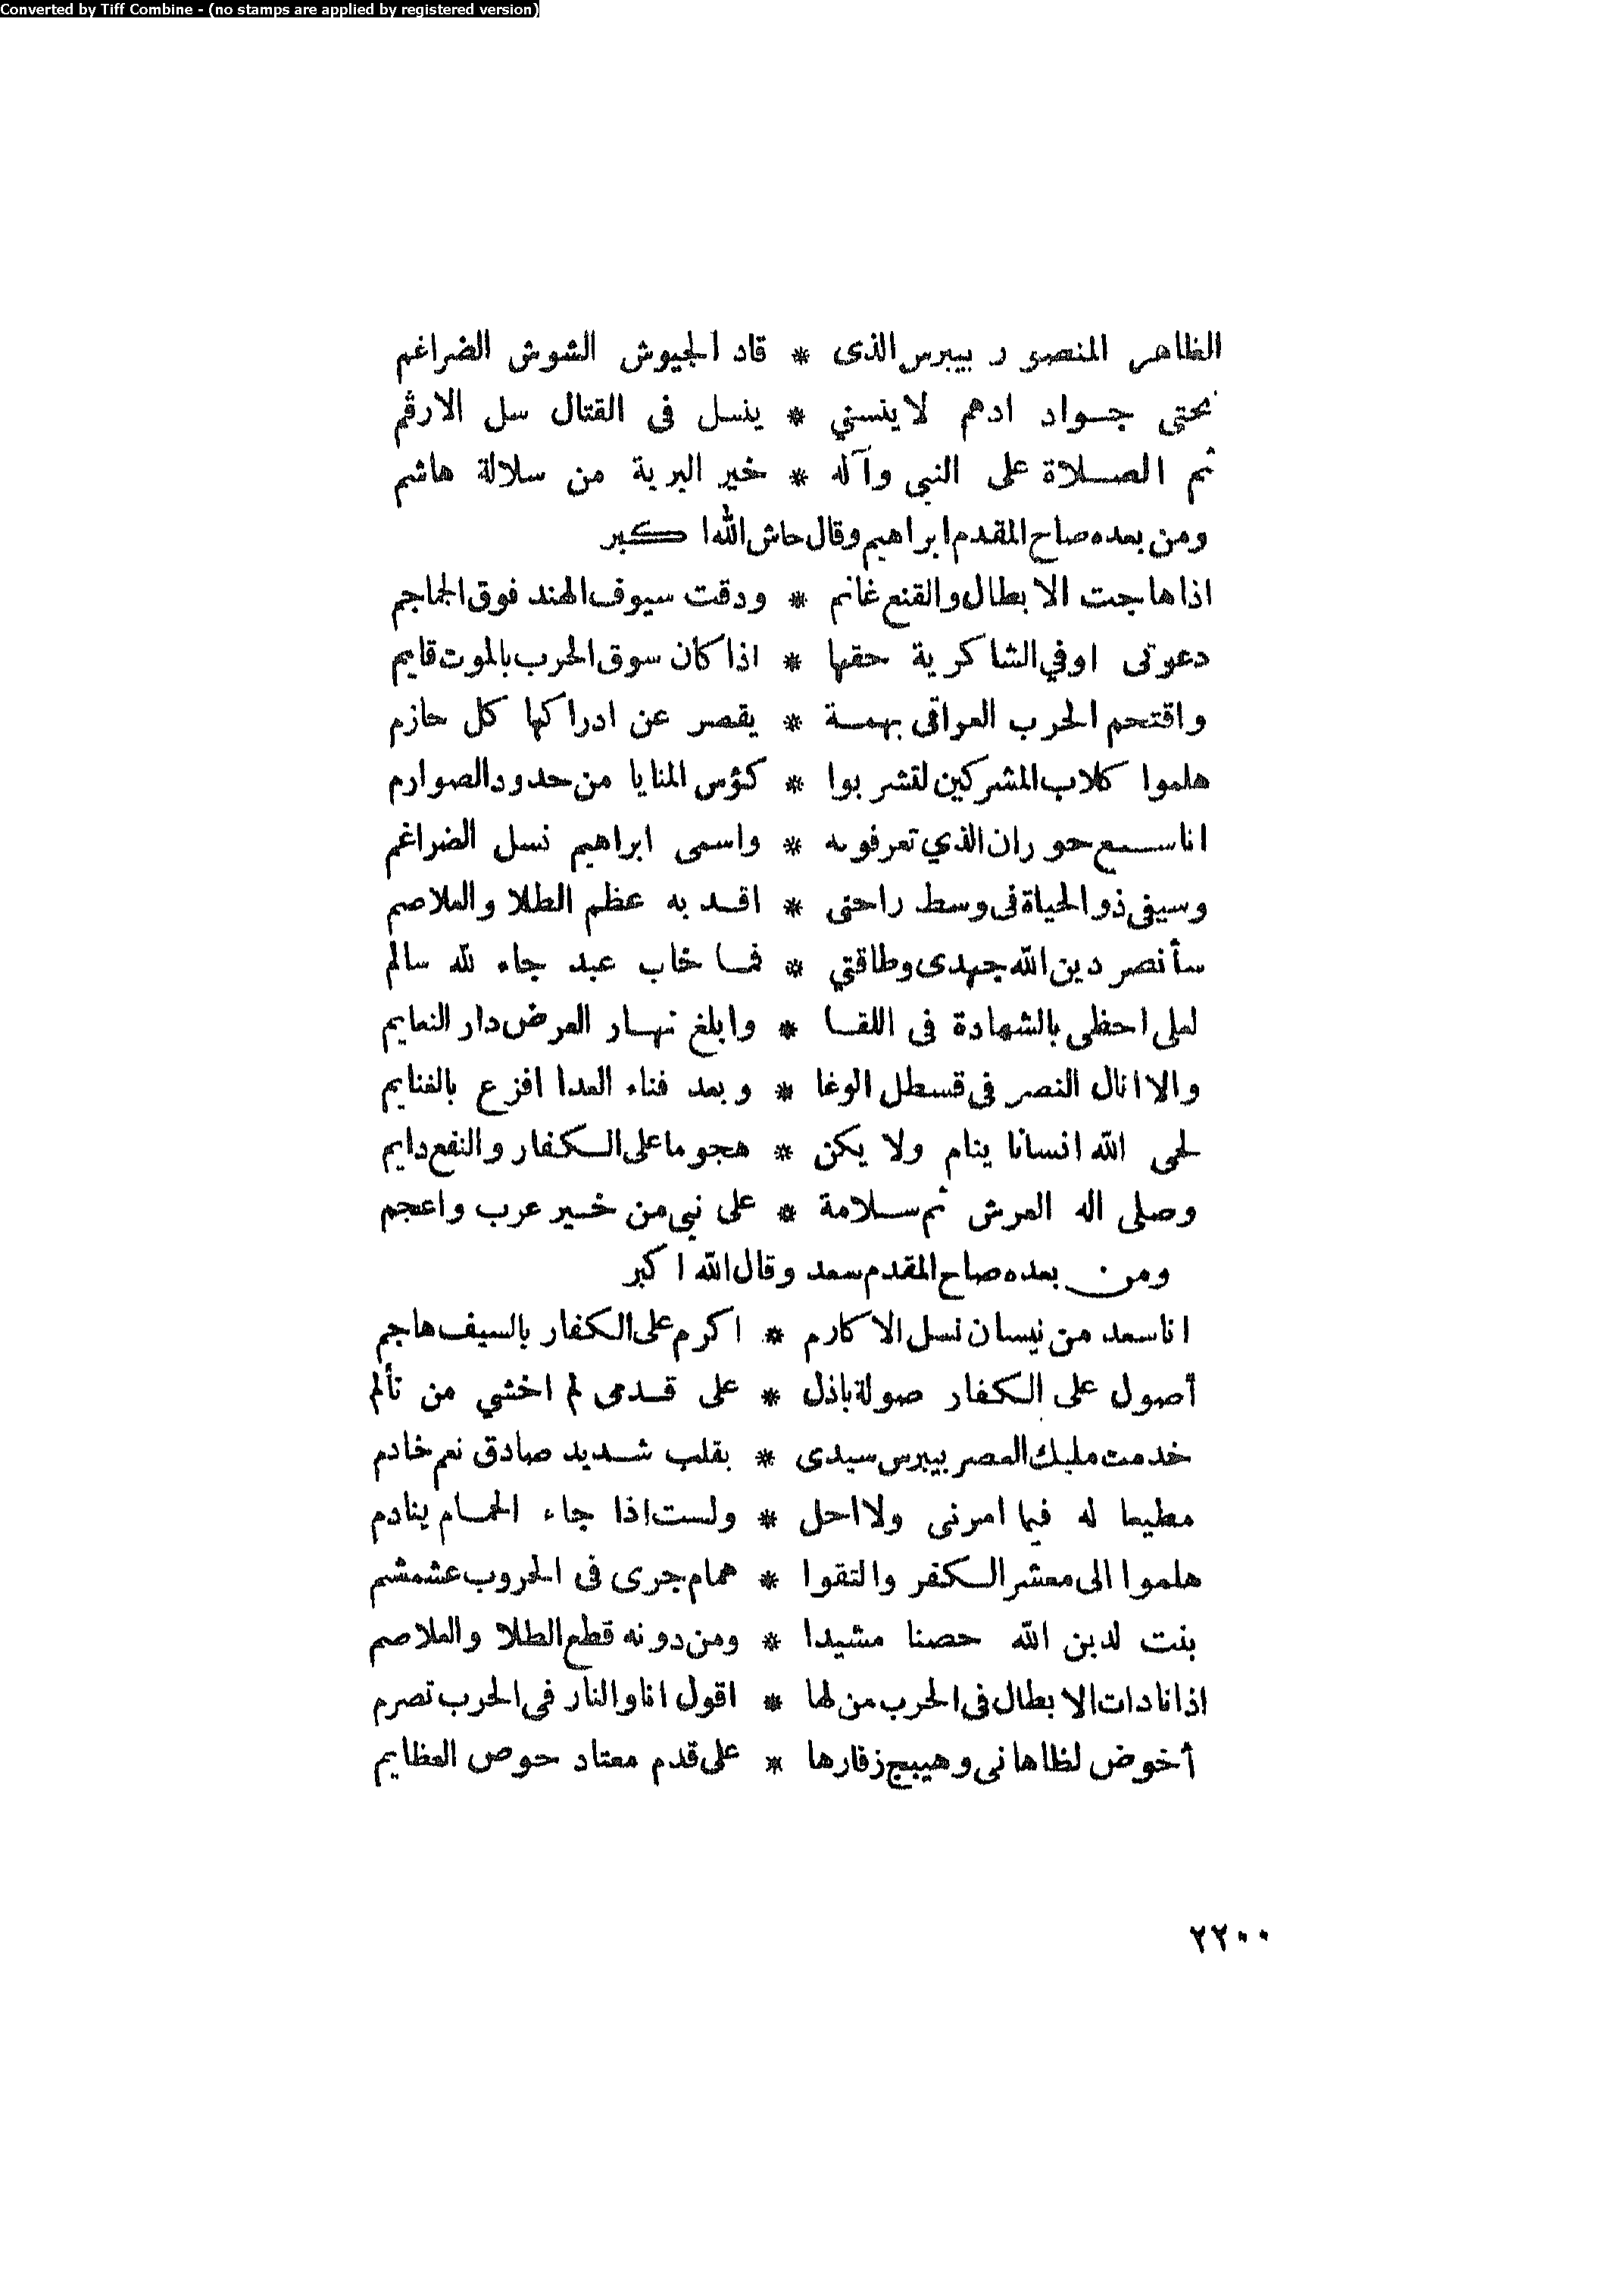 Converted by Tiff Combine - (no stamps are applied by registered version)
الظاهر المنصور بيبرس الذى * قاد الجيوش الشوش الضراغم
تحتى جواد ادهم لا ينسني * ينسل فى القتال سل الارقم
ثم الصلاة على النبي وآله * خير البرية من سلالة هاشم
ومن بعده صاح المقدم ابراهيم وقال حاش الله اكبر
اذا هاجت الابطال والقنع غانم * ودقت سيوف الهند فوق الجماجم
دعوتى اوفي الشاكرية حقها * اذا كان سوق الحرب بالموت قايم
واقتحم الحرب العواقى بهمة * يقصر عن ادراكها كل حازم
هلموا كلاب المشركين لتشربوا * كؤس المنايا من حدود الصوارم
انا سبع حوران الذي تعرفونه * واسمى ابراهيم نسل الضراغم
وسيفى ذو الحياة فى وسط راحتى * اقد به عظم الطلا والعلاصم
سأنصر دين الله جهدى وطاقتي * فما خاب عبد جاء لله سالم
لعلى احظى بالشهادة فى اللقا * وابلغ نهار العرض دار النعايم
والا انال النصر فى قسطل الوغا * وبعد فناء العدا افزع بالغنايم
لحى الله انسانا ينام ولا يكن * هجوما على الكفار والنفع دايم
وصلى اله العرش ثم سلامة * على نبي من خير عرب واعجم
ومن بعده صاح المقدم سعد وقال الله اكبر
انا سعد من نيسان نسل الاكارم * اكرم على الكفار بالسيف هاجم
أصول على الكفار صولة باذل * على قدمى لم اخشي من تألم
خدمت مليك العصر بيبرس سيدى * بقلب شديد صادق نعم خادم
مطيعا له فيما امرنى ولا احل * ولست اذا جاء الحمام ينادم
هلموا الى معشر الكفر والتقوا * همام جرى فى الحروب عشمشم
بنت لدين الله حصنا مشيدا * ومن دونه قطع الطلا والعلاصم
اذا نادات الابطال فى الحرب من لها * اقول انا والنار فى الحرب تصرم
أخوض لظاها نى وهيبج زفارها * على قدم معتاد حوص العظايم
٢٢٠٠